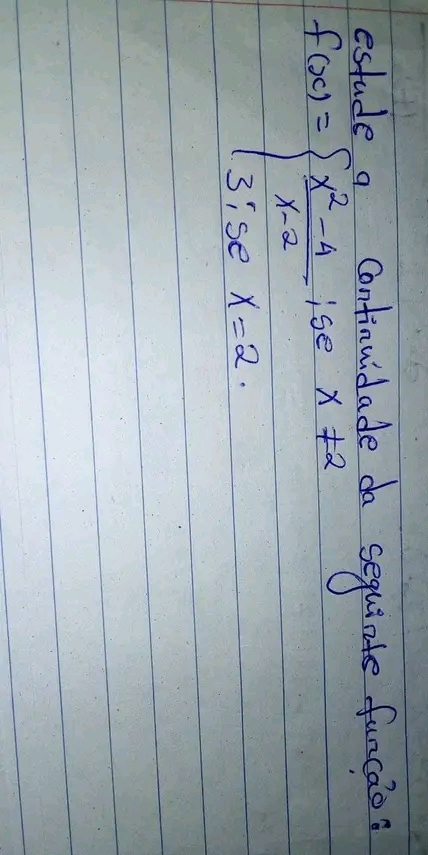 estude a Continuidade da seguinte função:
f(x) = { x² - 4 / x - 2 ; se x ≠ 2
{ 3 ; se x = 2.